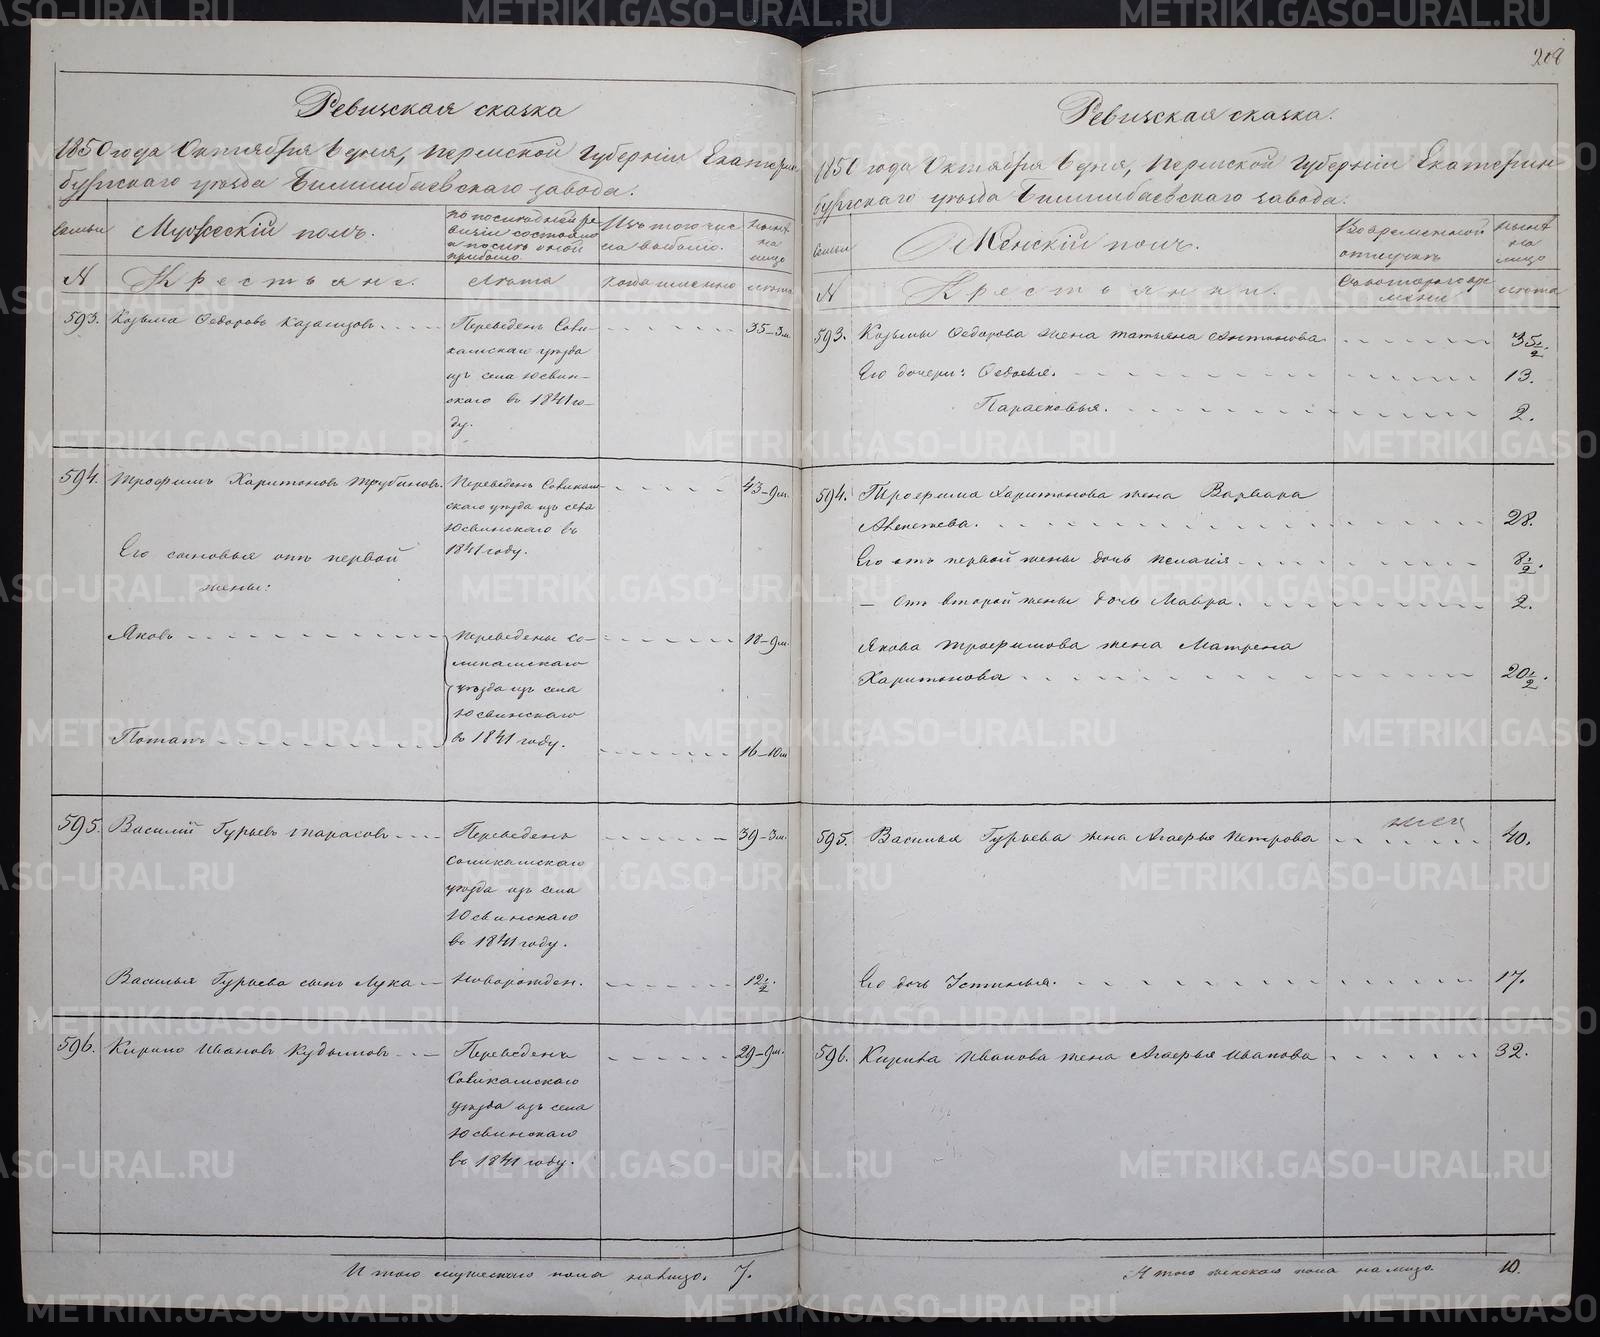 Ревизская сказка
1850 года Октября 6 дня, Пермской Губерніи Екатерин-
бургскаго уѣзда Билимбаевскаго завода.
семьи
Мужескій полъ.
по последней ре
визіи состояло
и послѣ оной
прибыло
Изъ того чис
ла выбыло.
нынѣ
на
лицо
№
Крестьяне.
Лѣта
когда именно
лѣта
593. Козьма Федоровъ Казанцовъ.
Переведенъ Соли-
камскаго уѣзда
изъ села Юсвин-
скаго въ 1841 го-
ду.
35-3м.
594. Трофимъ Харитоновъ Трубиновъ.
Переведенъ Соликам-
скаго уѣзда изъ села
Юсвинскаго въ
1841 году.
43-9м.
Его сыновья отъ первой
жены:
Яковъ
Переведены Со-
ликамскаго
уѣзда изъ села
Юсвинскаго
въ 1841 году.
18-9м.
Потапъ
16-10м
595. Василій Гурьевъ Тарасовъ
Переведенъ
Соликамскаго
уѣзда изъ села
Юсвинскаго
въ 1841 году.
39-3м.
Василья Гурьева сынъ Лука
Новорожден.
12 1/2.
596. Кирило Ивановъ Кудымовъ
Переведенъ
Соликамскаго
уѣзда изъ села
Юсвинскаго
въ 1841 году.
29-9м.
Итого мужескаго пола налицо. 7.
208
Ревизская сказка.
1850 года Октября 6 дня, Пермской Губерніи Екатерин
бургскаго уѣзда Билимбаевскаго завода.
семьи
Женскій полъ.
Во временной
отлучкѣ
нынѣ
на
лицо
№
Крестьянки.
Съ котораго вре
мени
лѣта
593. Козьмы Федорова жена Татьяна Антонова 35 1/2.
Его дочери: Федосья. 13.
Парасковья. 2.
594. Трофима Харитонова жена Варвара
28.
Его отъ первой жены дочь Пелагія 8 1/2.
— Отъ второй жены дочь Мавра. 2.
Якова Трофимова жена Матрена
Харитонова 20 1/2.
595. Василья Гурьева жена Агафья Петрова 40.
Его дочь Устинья. 17.
596. Кирила Иванова жена Агафья Иванова 32.
Итого женскаго пола налицо. 10.
METRIKI.GASO-URAL.RU